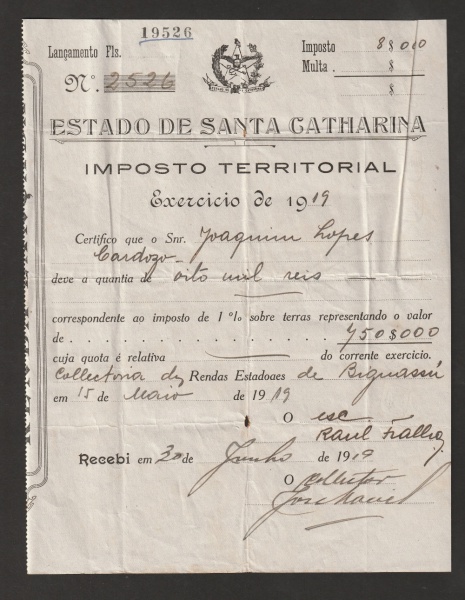 19526
Lançamento Fls.
Imposto 8$000
Multa . $
Nº. 2526
$
ESTADO DE SANTA CATHARINA
IMPOSTO TERRITORIAL
Exercicio de 1919
Certifico que o Snr. Joaquim Lopes
Cardozo
deve a quantia de oito mil reis
correspondente ao imposto de 1 º/o sobre terras representando o valor
de . . . . . . . . . . . . . . . . . . 750$000
cuja quota é relativa do corrente exercicio.
Collectoria de Rendas Estadoaes de Biguassú
em 15 de Maio de 1919
O esc
Raul Fialho
Recebi em 30 de Junho de 1919
O Collector